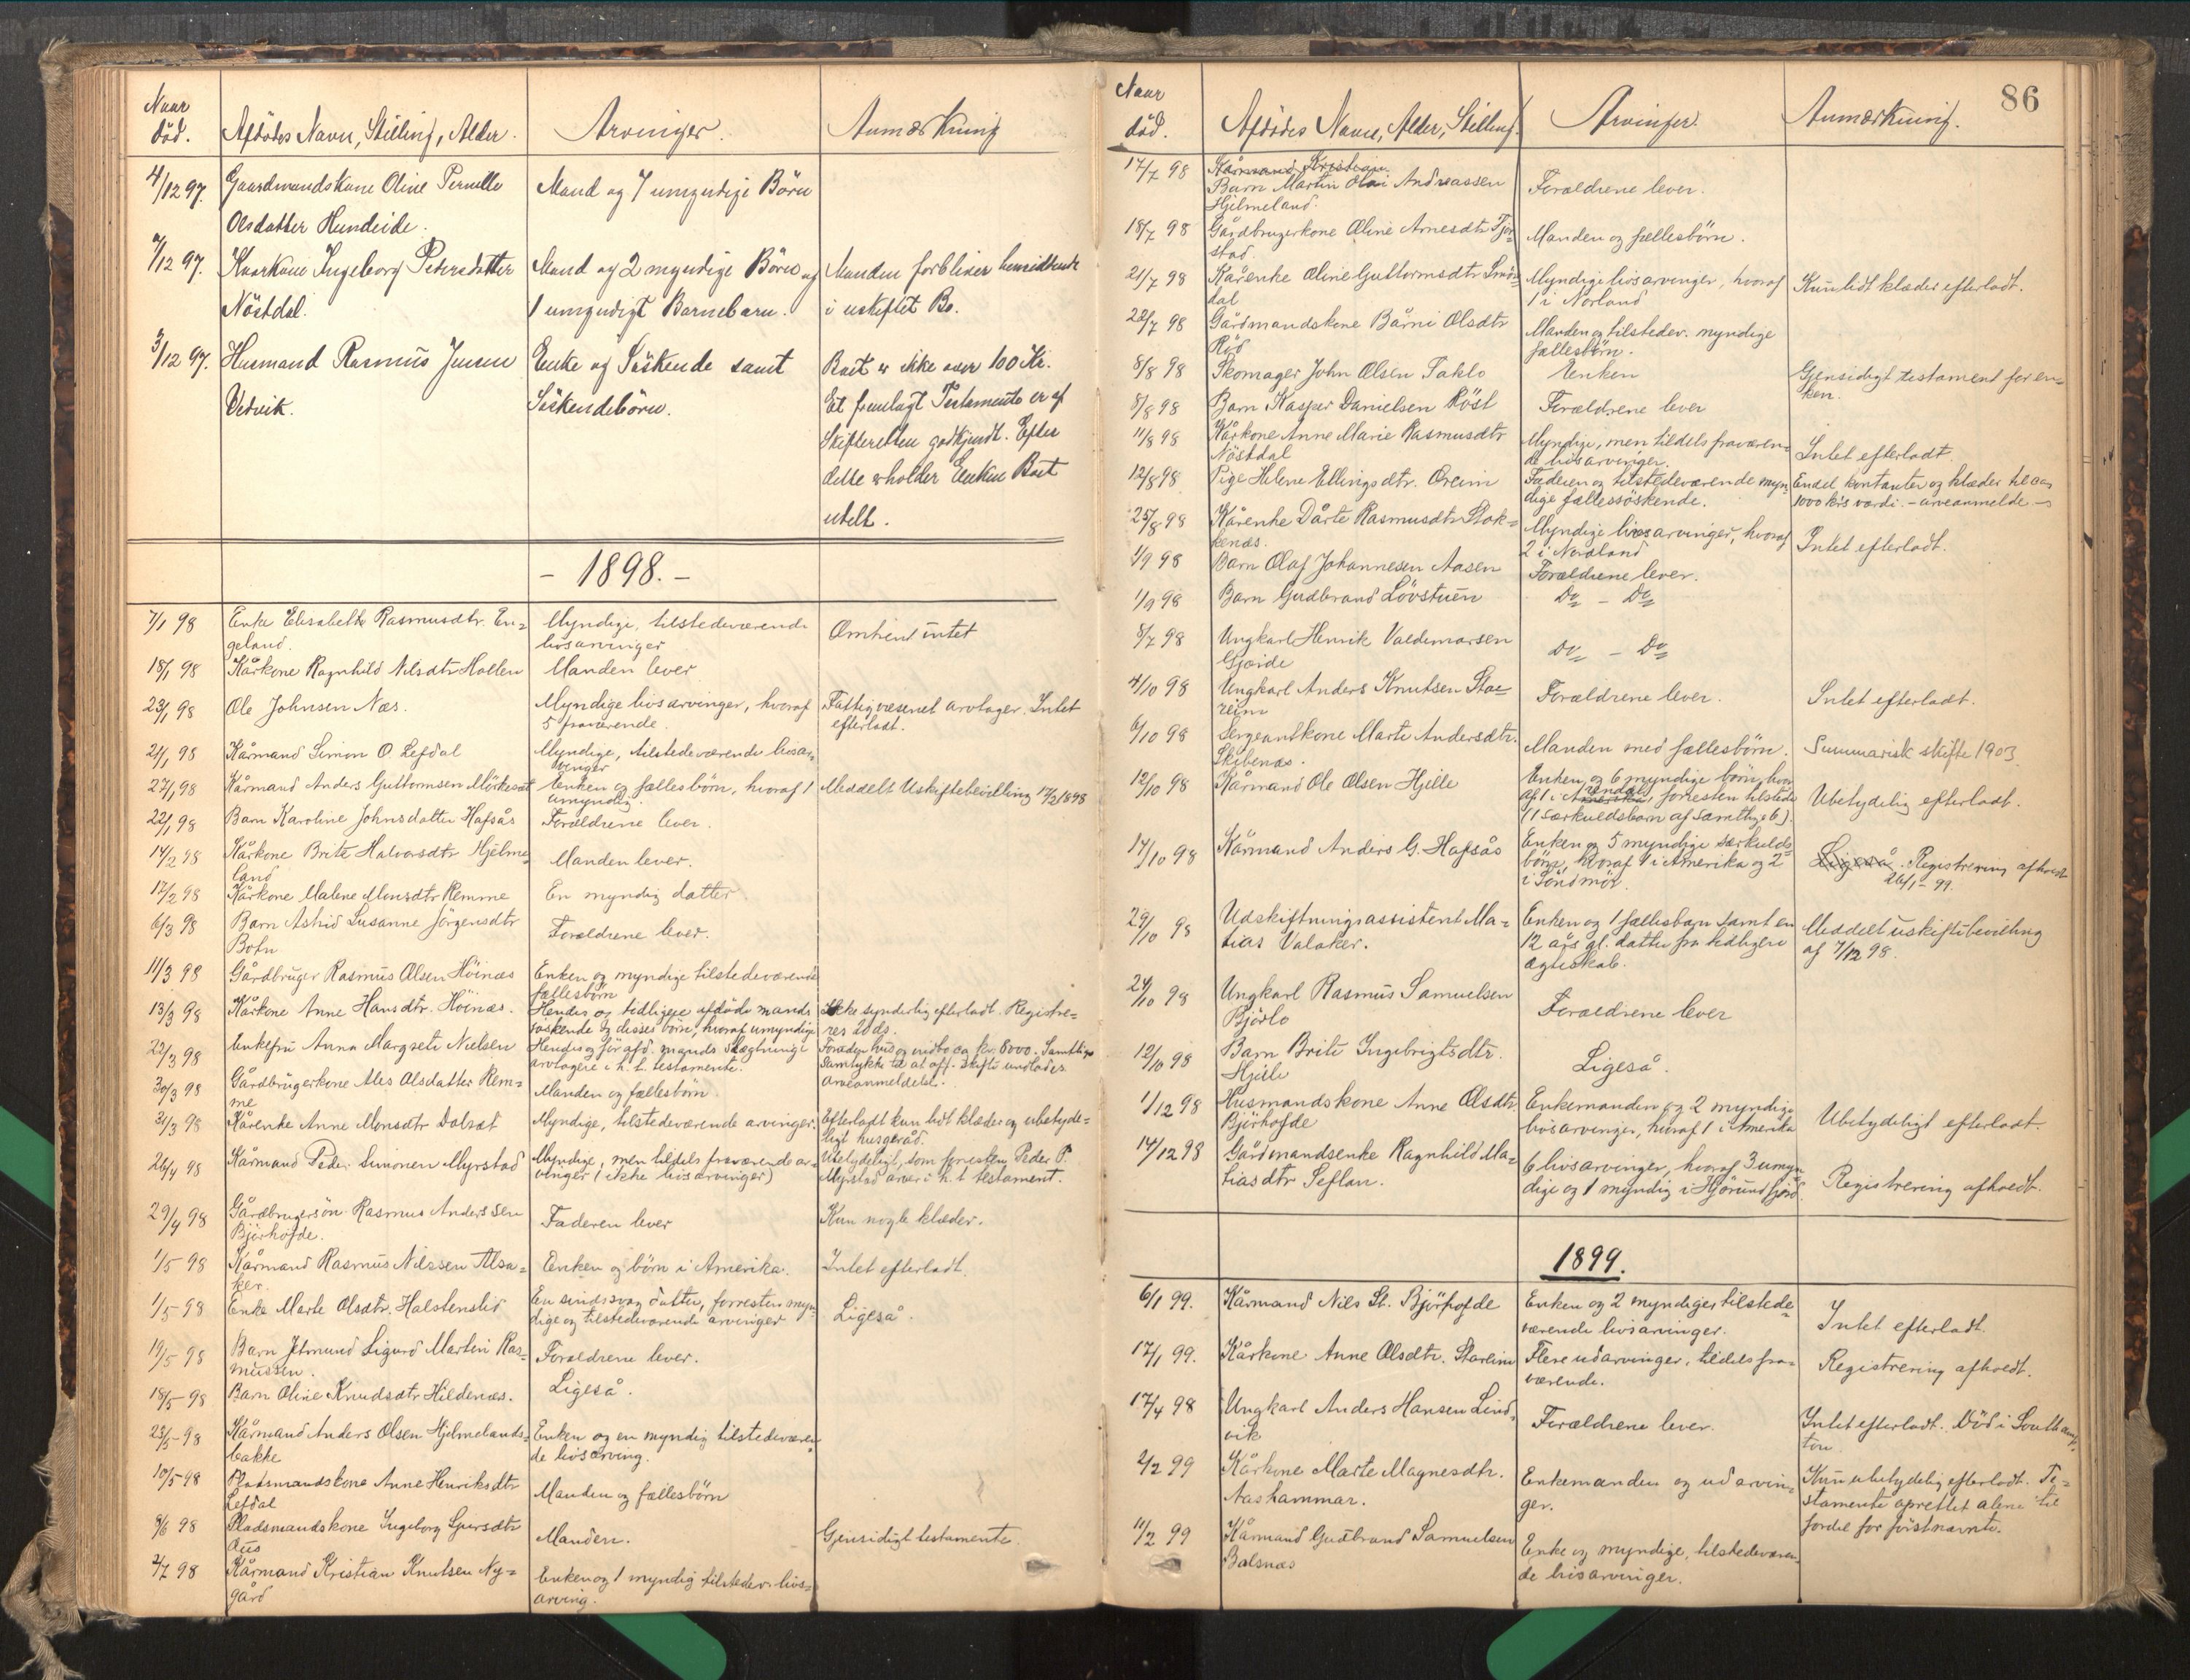 Naar
död.
Afdödes Navn, Stilling, Alder.
Arvinger.
Anmærkning
4/12 97.
Gaardmandskone Oline Pernille
Olsdatter Hundeide.
Mand og 7 umyndige Börn
7/12 97.
Kaarkone Ingeborg Pedersdatter
Nöstdal.
Mand og 2 myndige Börn og
1 umyndigt Barnebarn.
Manden forbliver hensiddende
i uskiftet Bo.
3/12 97.
Husmand Rasmus Jensen
Vedvik.
Enke og Söskende samt
Söskendebörn.
Boet er ikke over 100 Kr.
Et fremlagt Testamente er af
Skifteretten godkjendt. Efter
dette erholder Enken Boet
udelt.
- 1898. -
7/1 98
Enke Elisabeth Rasmusdtr. En=
geland.
Myndige, tilstedeværende
livsarvinger
Omtrent intet
18/1 98
Kårkone Ragnhild Nilsdtr Hollen
Manden lever
23/1 98
Ole Johnsen Næs.
Myndige livsarvinger, hvoraf
5 fraværende.
Fattigvæsenet arvtager. Intet
efterladt.
21/1 98
Kårmand Simon O. Lefdal
Myndige, tilstedeværende livsar=
vinger
27/1 98
Kårmand Anders Guttormsen Mörkesæt
Enken og fællesbörn, hvoraf 1
umyndig.
Meddelt Uskiftebevilling 17/2 1898
22/1 98
Barn Karoline Johnsdatter Hafsås
Forældrene lever.
14/2 98
Kårkone Brite Halvorsdtr Hjelme=
land
Manden lever.
12/2 98
Kårkone Malene Monsdtr Remme
En myndig datter
6/3 98
Barn Astrid Susanne Jörgensdtr
Botn
Forældrene lever.
11/3 98
Gårdbruger Rasmus Olsen Höinæs
Enken og myndige tilstedeværende
fællesbörn
13/3 98
Kårkone Anne Hansdtr. Höinæs.
Hendes og tidligere afdöde mands
söskende og disses börn, hvoraf umyndige
Ikke synderlig efterladt. Registre=
res 20 ds.
22/3 98
Enkefru Anna Margrete Nielsen
Hendes og för afd. mands slægtninge
arvtagere i h. t. testamente.
Foruden hus og indbo ca kr. 8000. Samtlige
samtykke til at off. skifte undlades
arveanmeldelse.
30/3 98
Gårdbrugerkone Ales Olsdatter Rem=
me
Manden og fællesbörn
31/3 98
Kårenke Anne Monsdtr Dalsæt
Myndige, tilstedeværende arvinger.
Efterladt kun lidt klæder og ubetyde=
ligt husgeråd.
26/4 98
Kårmand Peder Simonsen Myrstad
Myndige, men tildels fraværende ar=
vinger (ikke livsarvinger)
Ubetydeligt, som forresten Peder P.
Myrstad arver i h. t. testament.
29/4 98
Gårdbrugersön Rasmus Anderssen
Björhofde.
Faderen lever
Kun nogle klæder.
1/5 98
Kårmand Rasmus Nilssen Alsa=
ker.
Enken og börn i Amerika.
Intet efterladt.
1/5 98
Enke Marte Olsdtr. Halstenslid
En sindssvag datter, forresten myn=
dige og tilstedeværende arvinger
Ligeså.
19/5 98
Barn Jetmund Sigurd Martin Ras=
mussen.
Forældrene lever.
18/5 98
Barn Oline Knudsdtr Hildenæs.
Ligeså.
23/5 98
Kårmand Anders Olsen Hjelmelands=
bakke
Enken og en myndig tilstedeværen=
de livsarving.
10/5 98
Pladsmandskone Anne Henriksdtr
Lefdal
Manden og fællesbörn
9/6 98
Pladsmandskone Ingeborg Sjursdtr
Aus
Manden.
Gjensidigt testamente.
2/7 98
Kårmand Kristian Knutsen Ny=
gård
Enken og 1 myndig tilstedev. livs=
arving.
Naar
död.
Afdödes Navn, Alder, Stilling.
Arvinger.
Anmærkning.
86
17/7 98
Kårmand Kristian
Barn Martin Olai Andreassen
Hjelmeland.
Forældrene lever.
18/7 98
Gårdbrugerkone Oline Arnesdtr Tjör=
stad.
Manden og fællesbörn.
21/7 98
Kårenke Oline Guttormsdtr Smör=
dal
Myndige livsarvinger, hvoraf
1 i Norland
Kun lidt klæder efterladt.
22/7 98
Gårdmandskone Bårni Olsdtr
Röd
Manden og tilstedev. myndige
fællesbörn.
8/8 98
Skomager John Olsen Taklo
Enken
Gjensidigt testament for en=
ken.
8/8 98
Barn Kasper Danielsen Röst
Forældrene lever
11/8 98
Kårkone Anne Marie Rasmusdtr
Nöstdal
Myndige, men tildels fraværen=
de livsarvinger.
Intet efterladt.
12/8 98
Pige Helene Ellingsdtr. Oreim
Faderen og tilstedeværende myn=
dige fællessöskende.
Endel kontanter og klæder til ca
1000 kr's værdi. - arveanmelde.
25/8 98
Kårenke Dårte Rasmusdtr Stok=
kenæs.
Myndige livsarvinger, hvoraf
2 i Nordland
Intet efterladt.
1/9 98
Barn Olaf Johannesen Aasen
Forældrene lever.
1/9 98
Barn Gudbrand Lövstuen
Do - Do
8/7 98
Ungkarl Henrik Valdemarsen
Gjöide
Do - Do
4/10 98
Ungkarl Anders Knutsen Stor=
reim
Forældrene lever.
Intet efterladt.
6/10 98
Sergeantkone Marte Andersdtr.
Skibenæs.
Manden med fællesbörn.
Summarisk skifte 1903
12/10 98
Kårmand Ole Olsen Hjelle
Enken og 6 myndige börn, hvor=
af 1 i Arendal, forresten tilstede
(1 særkuldsbarn af samtlige 6).
Ubetydelig efterladt.
17/10 98
Kårmand Anders G. Hafsås
Enken og 5 myndige særkulds=
börn, hvoraf 1 i Amerika og 2
i Söndmör.
Ligeså. Registrering afholdt
26/1 - 99.
29/10 98
Udskiftningsassistent Ma=
tias Valaker.
Enken og 1 fællesbarn samt en
12 års gl. datter fra tidligere
ægteskab.
Meddelt uskiftebevilling
af 7/12 98.
24/10 98
Ungkarl Rasmus Samuelsen
Björlo
Forældrene lever
12/10 98
Barn Brite Ingebrigtsdtr.
Hjelle
Ligeså.
1/12 98
Husmandskone Anne Olsdtr.
Björhofde
Enkemanden og 2 myndige
livsarvinger, hvoraf 1 i Amerika
Ubetydeligt efterladt.
14/12 98
Gårdmandsenke Ragnhild Ma=
tiasdtr Seflan.
6 livsarvinger, hvoraf 3 umyn
dige og 1 myndig i Hjörundfjord.
Registrering afholdt.
1899.
6/1 99.
Kårmand Nils St. Björhofde
Enken og 2 myndige, tilstede=
værende livsarvinger.
Intet efterladt.
17/1 99.
Kårkone Anne Olsdtr. Storeim
Flere udarvinger, tildels fra=
værende.
Registrering afholdt.
17/4 98
Ungkarl Anders Hansen Lind=
vik
Forældrene lever.
Intet efterladt. Död i Southamp=
ton.
2/2 99
Kårkone Marte Magnesdtr.
Aashammar.
Enkemanden og udarvin=
ger.
Kun ubetydelig efterladt. Te=
stamente oprettet alene til
fordel for förstnævnte.
11/2 99
Kårmand Gudbrand Samuelsen
Balsnæs
Enke og myndige, tilstedeværen=
de livsarvinger.